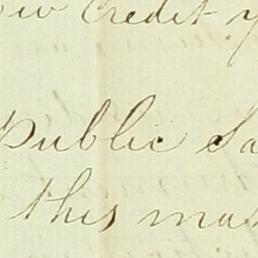 credit
public Sa
this mat